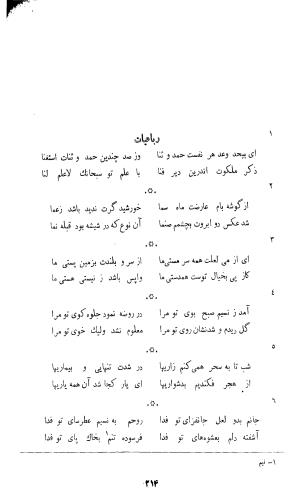 رباعیات
۱
ای بیحد وعد هر نفست حمد و ثنا وز صد چندین حمد و ثنات استغنا
ذکر ملکوت اندرین دیر فنا با علم تو سبحانك لاعلم لنا
۲
ازگوشه بام عارضت ماه سما خورشید گرت ندید باشد زعما
شد عکس دو ابروت بچشم صنما آن نوع که در شیشه بود قبله نما
۳
ای از می لعلت همه سر مستی ما از سر و بلندت بزمین پستی ما
کاز پی بخیال تست همدستی ما واپس باشد ز نیستی هستی ما
۴
آمد ز نسیم صبح بوی تو مرا در روضه نمود جلوه کوی تو مرا
گل دیدم و شد نشان روی تو مرا معلوم نشد ولیك خوی تو مرا
۵
شب تا به سحر همی کنم زاریها در شدت تنهایی و بیماریها
از هجر فکندیم بدشواریها ای یار کجا شد آن همه یاریها
۶
جانم بدو لعل جانفزای تو فدا روحم به نسیم عطرسای تو فدا
آشفته دلم بعشوه‌های تو فدا فرسوده تنم۱ بخاك پای تو فدا
۱-
۲۱۴